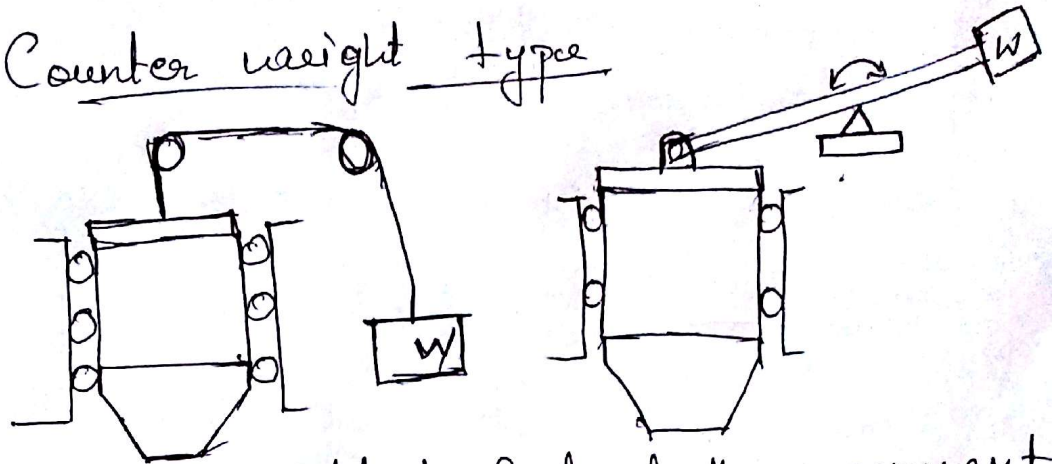 Counter weight type
W
W